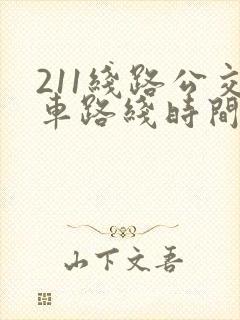 211綫路公交
車路綫時間
山下文吾